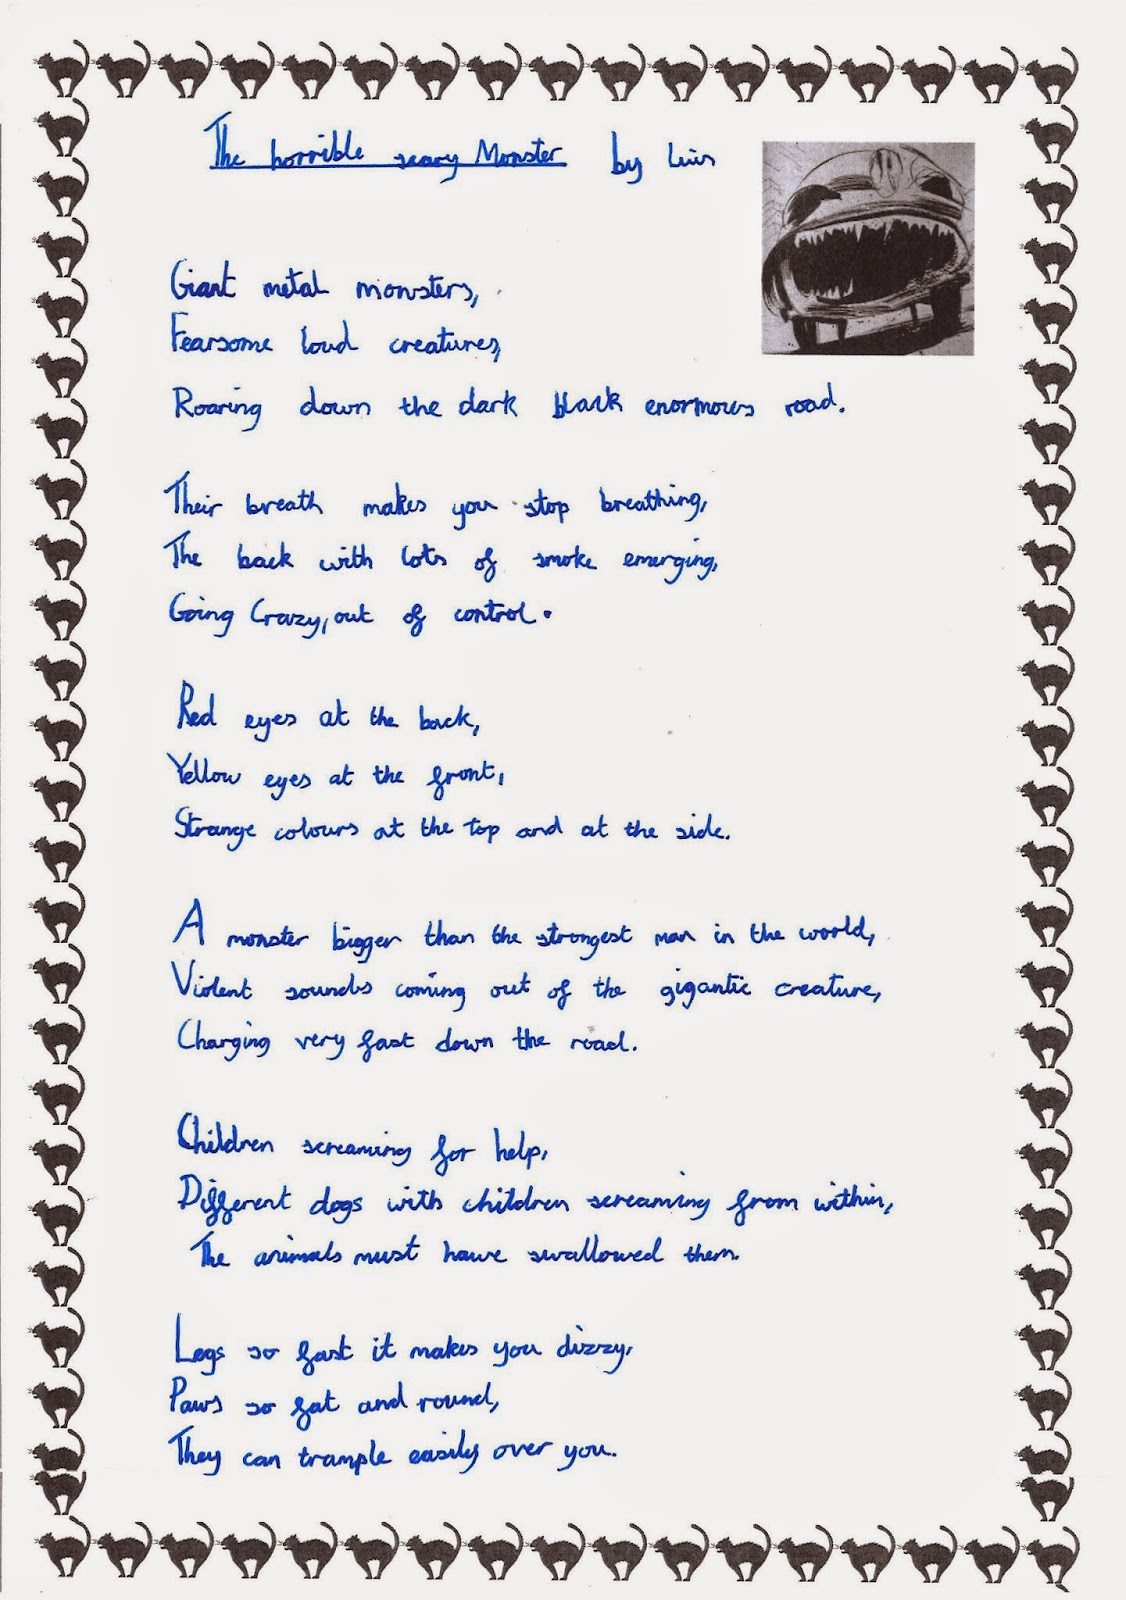 The horrible scary Monster by Luis
Giant metal monsters,
Fearsome loud creatures,
Roaring down the dark black enormous road.
Their breath makes you stop breathing,
The back with lots of smoke emerging,
Going Crazy, out of control.
Red eyes at the back,
Yellow eyes at the front,
Strange colours at the top and at the side.
A monster bigger than the strongest man in the world,
Violent sounds coming out of the gigantic creature,
Charging very fast down the road.
Children screaming for help,
Different dogs with children screaming from within,
The animals must have swallowed them.
Legs so fast it makes you dizzy,
Paws so fat and round,
They can trample easily over you.